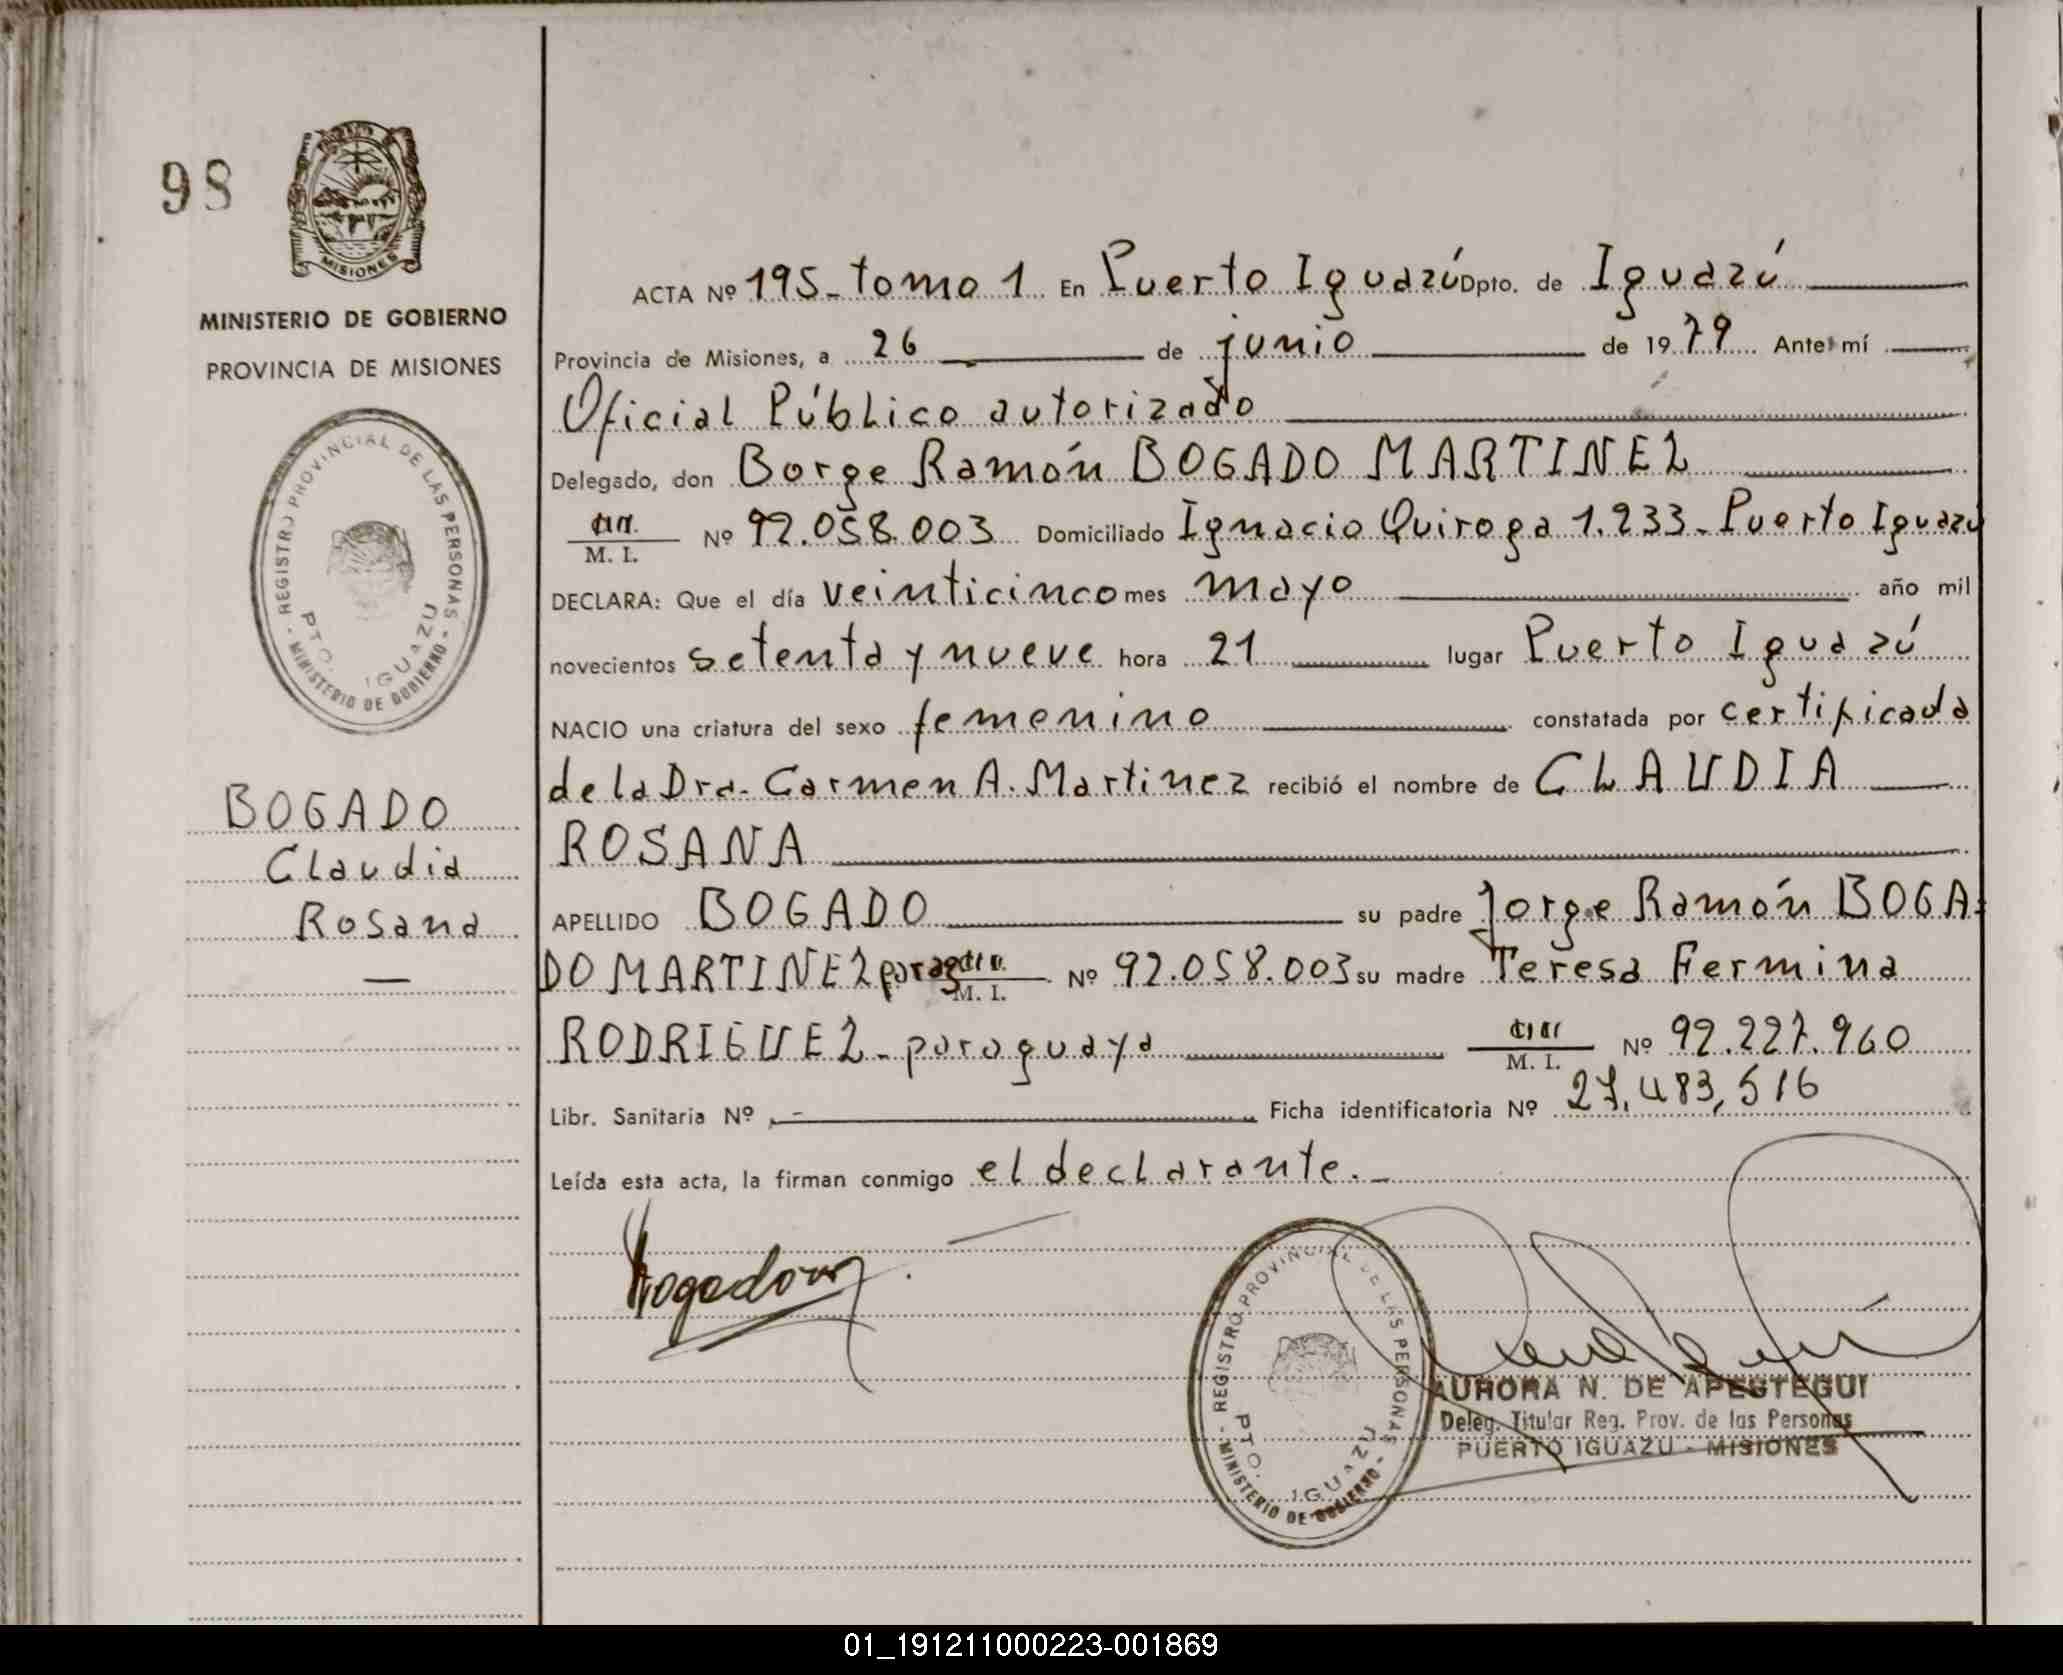 98
MISIONES
MINISTERIO DE GOBIERNO
PROVINCIA DE MISIONES
REGISTRO PROVINCIAL DE LAS PERSONAS
PTO. IGUAZU
- MINISTERIO DE GOBIERNO -
BOGADO
Claudia
Rosana
ACTA Nº 195_tomo 1 En Puerto Iguazú Dpto. de Iguazú
Provincia de Misiones, a 26 de junio de 1979 Ante mí
Oficial Público autorizado
Delegado, don Borge Ramón BOGADO MARTINEZ
M. I. Nº 92.058.003 Domiciliado Ignacio Quiroga 1.233_Puerto Iguazú
DECLARA: Que el día veinticinco mes mayo año mil
novecientos setenta y nueve hora 21 lugar Puerto Iguazú
NACIO una criatura del sexo femenino constatada por certificado
de la Dra. Carmen A. Martinez recibió el nombre de CLAUDIA
ROSANA
APELLIDO BOGADO su padre Jorge Ramón BOGA-
DO MARTINEZ parag M. I. Nº 92.058.003 su madre Teresa Fermina
RODRIGUEZ - paraguaya M. I. Nº 92.227.960
Libr. Sanitaria Nº - Ficha identificatoria Nº 27,483,516
Leída esta acta, la firman conmigo el declarante.-
REGISTRO PROVINCIAL DE LAS PERSONAS
PTO. IGUAZU
- MINISTERIO DE GOBIERNO -
AURORA N. DE APESTEGUI
Deleg. Titular Reg. Prov. de las Personas
PUERTO IGUAZU - MISIONES
01_191211000223-001869